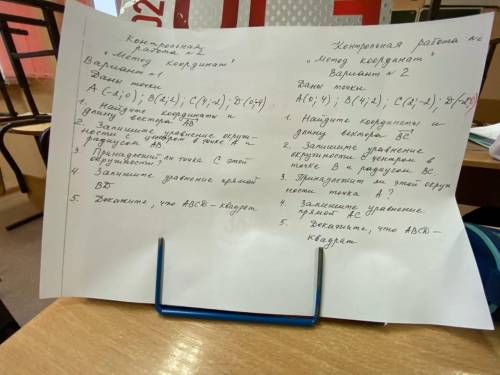 Контрольная
работа №2
"Метод координат"
Вариант №1
Даны точки
A(-2;0); B(2;2); C(4;-2); D(0;-4)
1. Найдите координаты и
длину вектора AB
2. Запишите уравнение окруж-
ности с центром в точке A и
радиусом AB.
3. Принадлежит ли точка C этой
окружности?
4. Запишите уравнение прямой
BD
5. Докажите, что ABCD - квадрат
Контрольная работа №2
"Метод координат"
Вариант 2
Даны точки
A(0;4); B(4;2); C(2;-2); D(-2;0)
1. Найдите координаты и
длину вектора BC
2. Запишите уравнение
окружности с центром в
точке B и радиусом BC.
3. Принадлежит ли этой окруж
ности точка A?
4. Запишите уравнение
прямой AC
5. Докажите, что ABCD -
квадрат